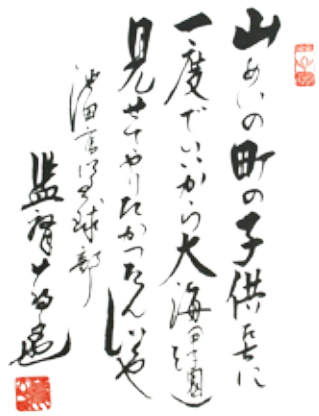 山あいの町の子供たちに
一度でいいから大海(甲子園)
見せてやりたかったんじゃ
池田高校野球部
監督